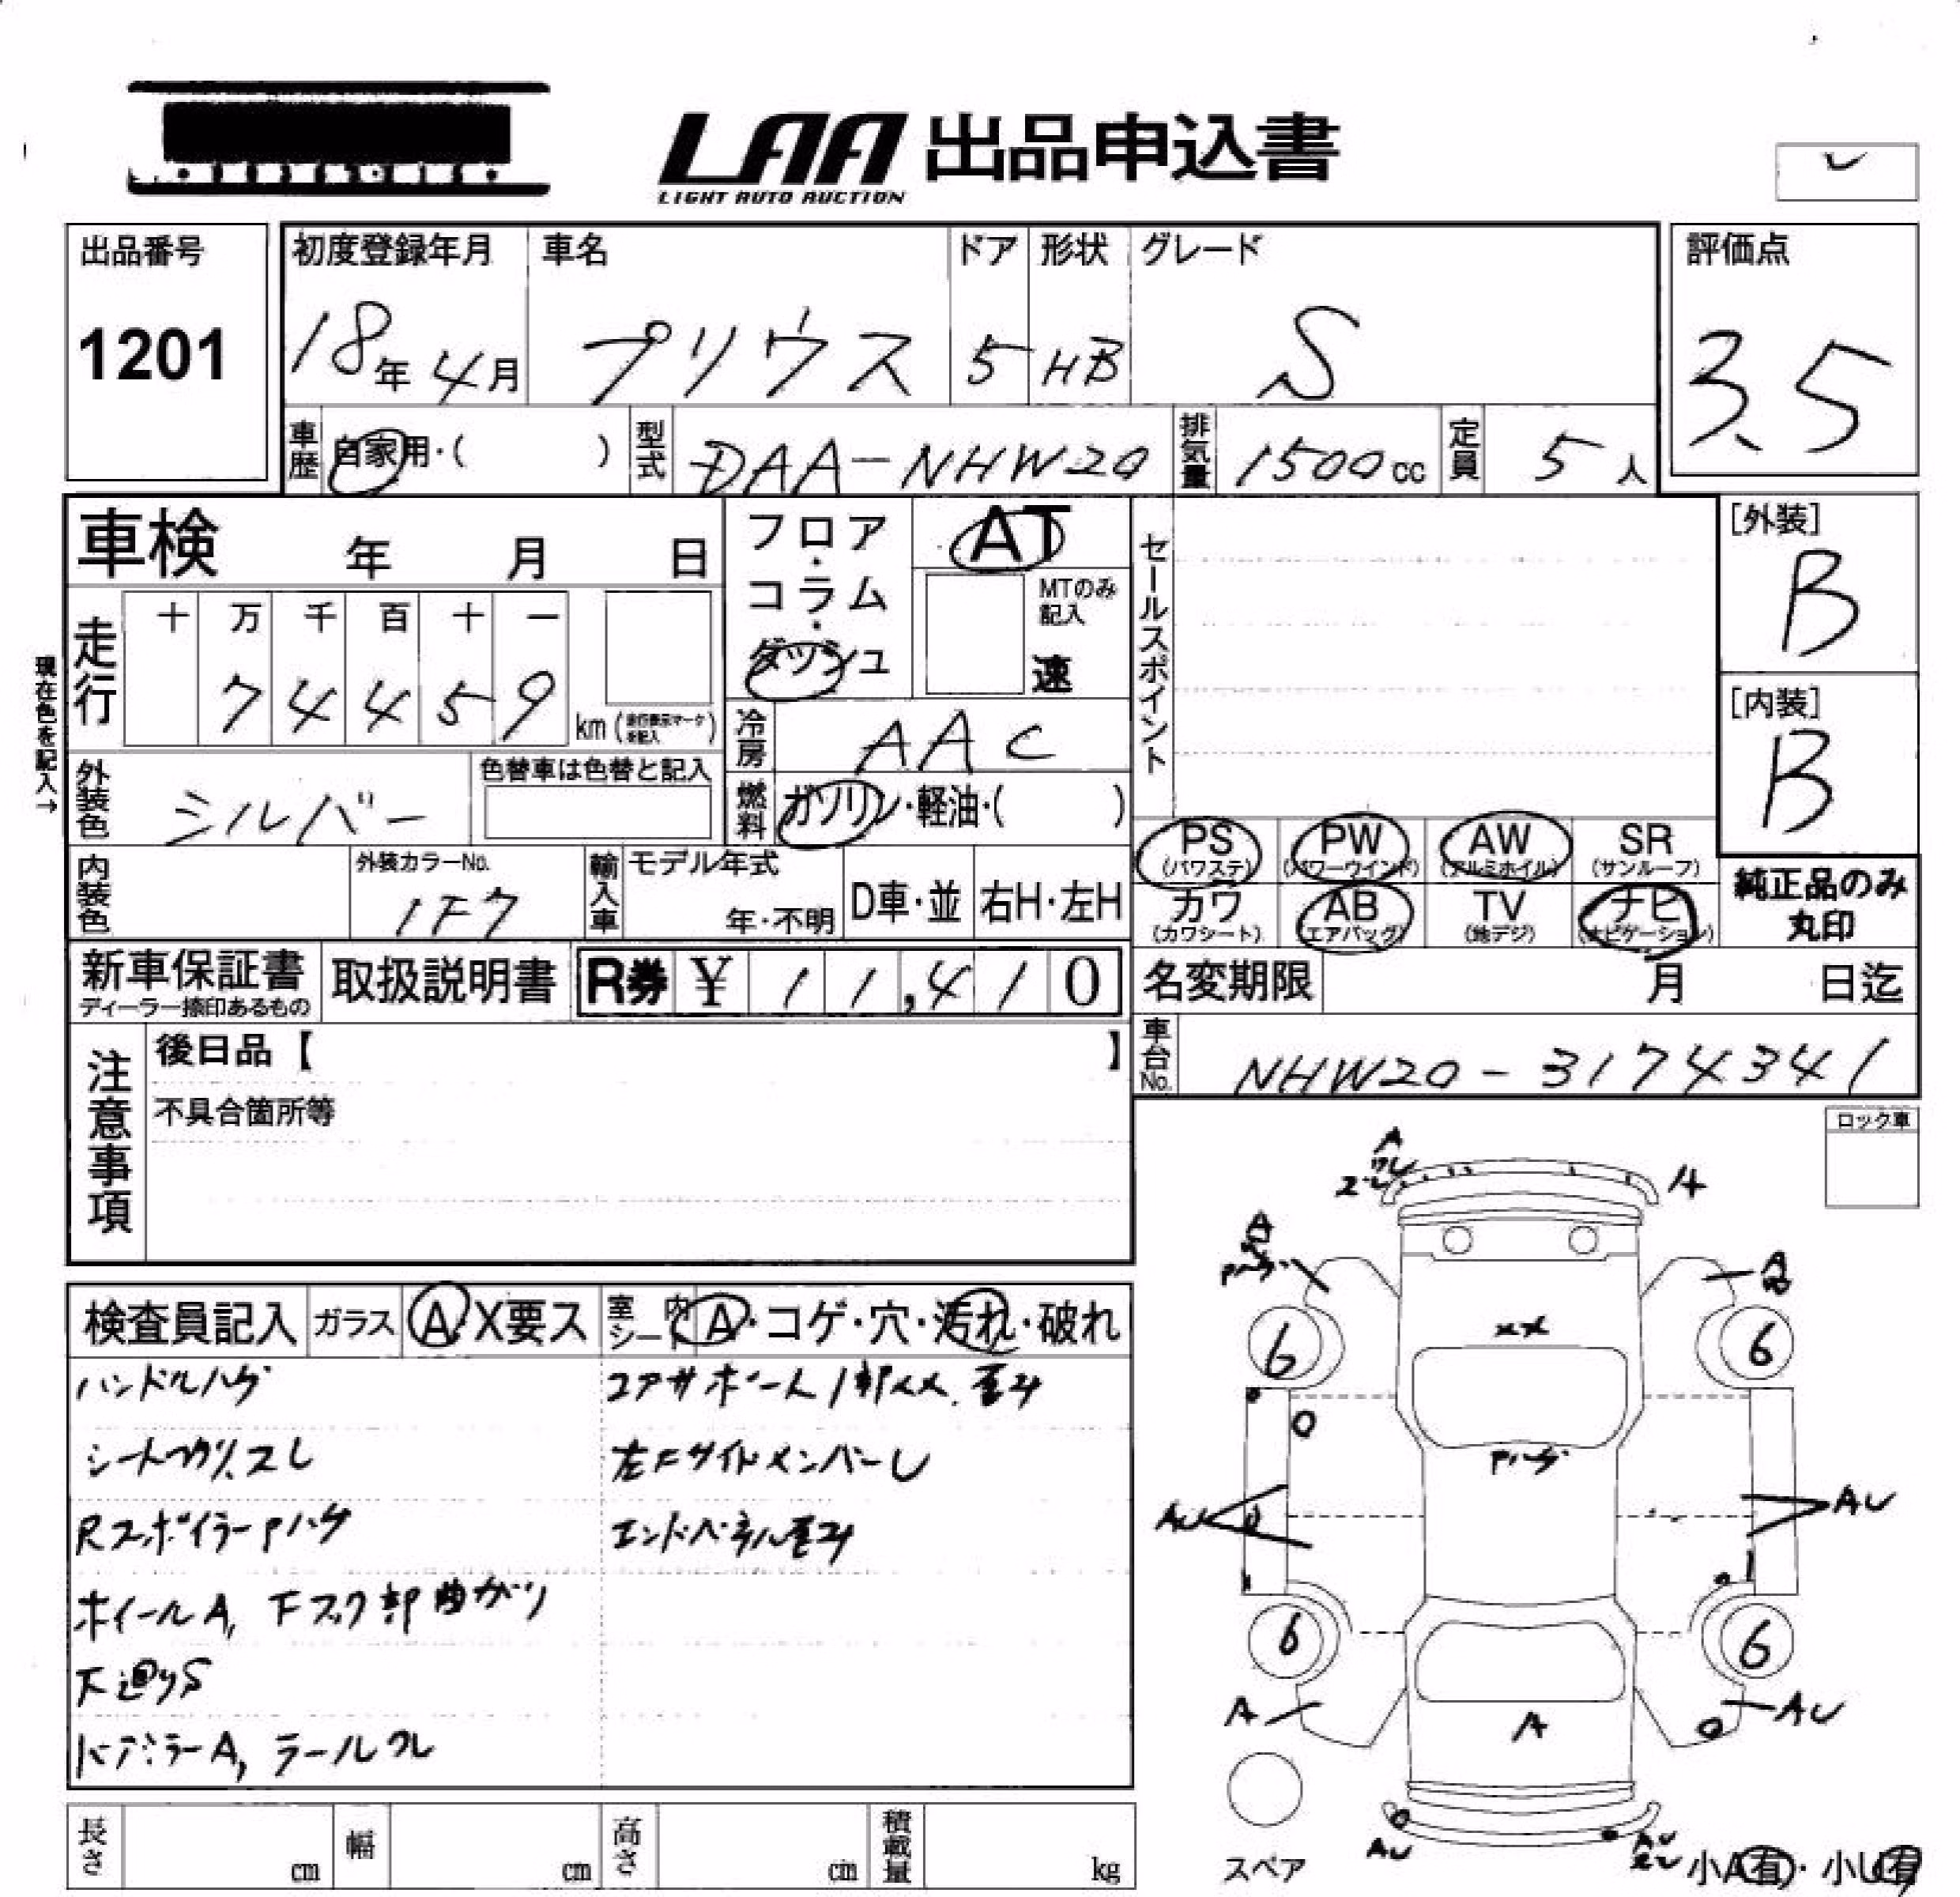 LAA 出品申込書
LIGHT AUTO AUCTION
出品番号
1201
初度登録年月
18年 4月
車名
プリウス
ドア
5
形状
HB
グレード
S
評価点
3.5
車歴 自家用・( )
型式 DAA-NHW20
排気量 1500cc
定員 5人
車検 年 月 日
フロア・コラム・ダッシュ
AT
MTのみ記入
速
セールスポイント
[外装]
B
[内装]
B
現在色を記入→
走行
十 万 千 百 十 一
7 4 4 5 9
km (走行表示マークを記入)
冷房 AAC
外装色 シルバー
色替車は色替と記入
燃料 ガソリン・軽油・( )
内装色
外装カラーNo.
1F7
輸入車
モデル年式
年・不明
D車・並
右H・左H
PS (パワステ)
PW (パワーウインド)
AW (アルミホイル)
SR (サンルーフ)
カワ (カワシート)
AB (エアバッグ)
TV (地デジ)
ナビ (ナビゲーション)
純正品のみ丸印
新車保証書
ディーラー捺印あるもの
取扱説明書
R券 ¥ 11,410
名変期限 月 日迄
車台No. NHW20-3174341
注意事項
後日品【 】
不具合箇所等
ロック車
検査員記入
ガラス A X要ス
室内シート A・コゲ・穴・汚れ・破れ
ハンドルハゲ
シート スレ
RスポイラーPハゲ
ホイールA, Fフック部曲がり
下廻りS
ドアミラーA, ラールワレ
コアサポート1部XX. 歪み
左FサイドメンバーU
エンドパネル歪み
A
A
Pハゲ
A
XX
6
6
Pハゲ
AU
AU
6
6
A
A
AU
AU
AU
スペア
小A有・小U有
長さ cm
幅 cm
高さ cm
積載量 kg